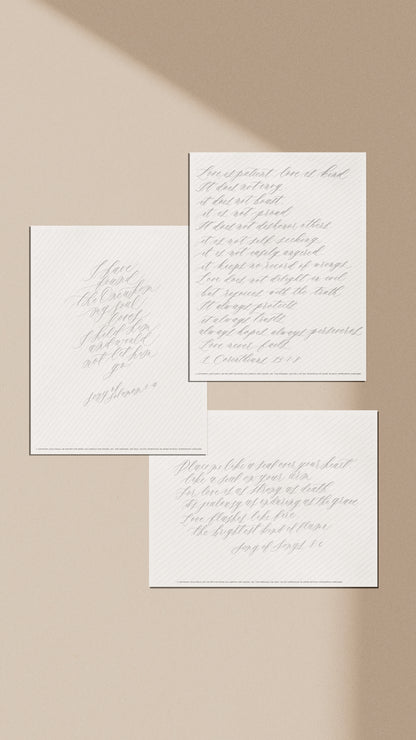 Love is patient love is kind
It does not envy
it does not boast
it is not proud
It does not dishonor others
it is not self-seeking
it is not easily angered
it keeps no record of wrongs
Love does not delight in evil
but rejoices with the truth
It always protects
always trusts
always hopes always perseveres
Love never fails
1 Corinthians 13:4-8
I have
found
the one whom
my soul
loves
I held him
and would
not let him
go
Song of Solomon 3:4
Place me like a seal over your heart
like a seal on your arm
For love is as strong as death
its jealousy as enduring as the grave
Love flashes like fire
the brightest kind of flame
Song of Songs 8:6